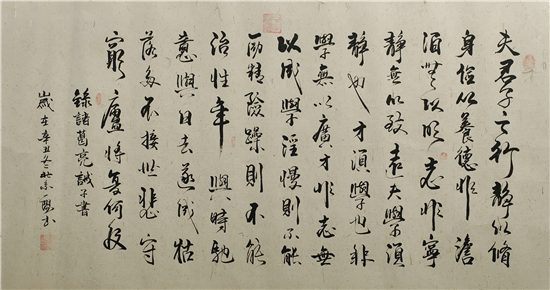 夫君子之行靜以脩
身儉以養德非澹
泊無以明志非寧
靜無以致遠夫學須
靜也才須學也非
學無以廣才非志無
以成學淫慢則不能
勵精險躁則不能
治性年與時馳
意與日去遂成枯
落多不接世悲守
窮廬將復何及
錄諸葛亮誡子書
歲在辛丑冬書